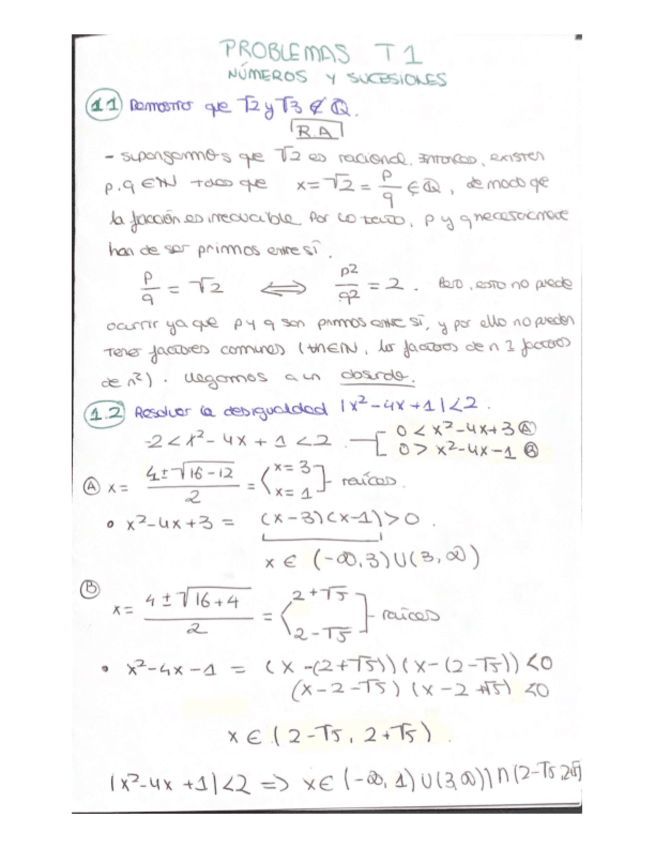 PROBLEMAS T1
NÚMEROS Y SUCESIONES
1.1 Demostrar que √2 y √3 ∉ ℚ.
R.A
- supongamos que √2 es racional. Entonces, existen
p, q ∈ ℕ tales que x = √2 = p/q ∈ ℚ, de modo que
la fracción es irreducible. Por lo tanto, p y q necesariamente
han de ser primos entre sí.
p/q = √2 ⟺ p²/q² = 2. Pero, esto no puede
ocurrir ya que p y q son primos entre sí, y por ello no pueden
tener factores comunes (∀n∈ℕ, los factores de n factores
de n²). Llegamos a un absurdo.
1.2 Resolver la desigualdad |x²-4x+1|<2.
-2<x²-4x+1<2 0<x²-4x+3 Ⓐ
0>x²-4x-1 Ⓑ
Ⓐ x = (4±√16-12)/2 = x=3 x=1 - raíces.
• x²-4x+3 = (x-3)(x-1)>0.
x ∈ (-∞,3)∪(3,∞)
Ⓑ x = (4±√16+4)/2 = 2+√5 2-√5 - raíces
• x²-4x-1 = (x-(2+√5))(x-(2-√5))<0
(x-2-√5)(x-2+√5)<0
x ∈ (2-√5, 2+√5).
|x²-4x+1|<2 => x∈(-∞,1)∪(3,∞))∩(2-√5,2√5)